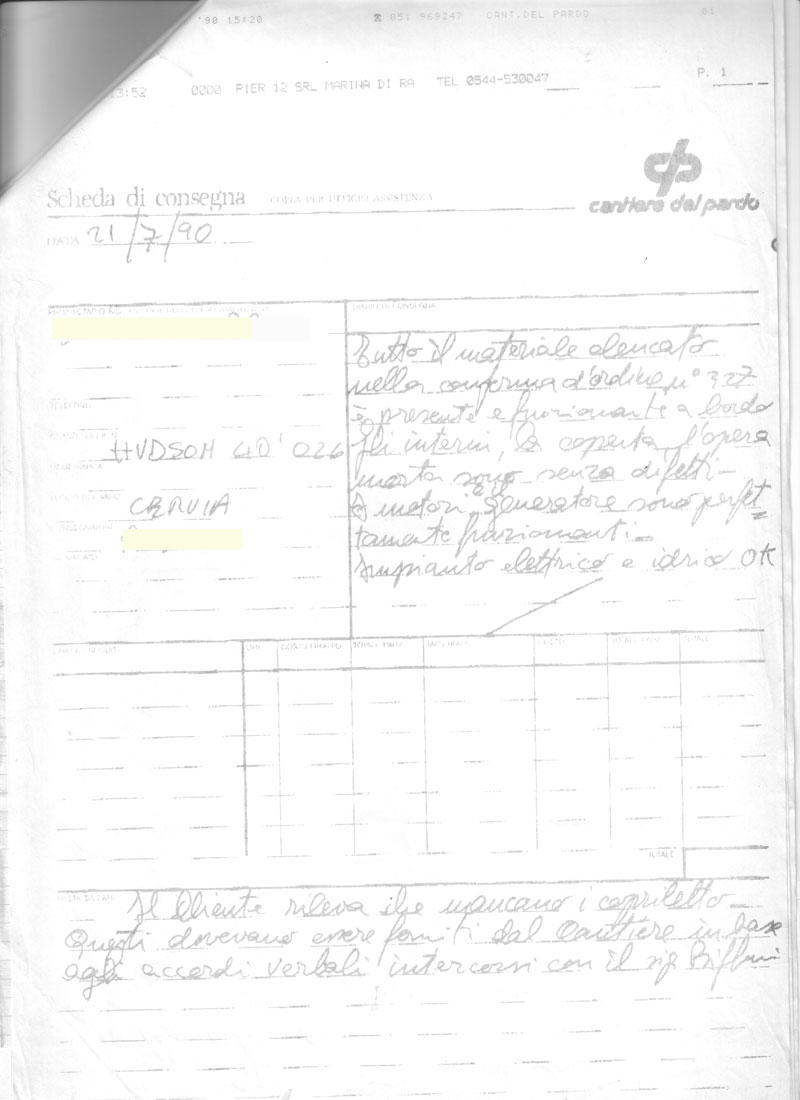 '90 15:20 ☎ 051 969247 CANT.DEL PARDO 01
13:52 0000 PIER 12 SRL MARINA DI RA TEL 0544-530047 P. 1
cantiere del pardo
Scheda di consegna COPIA PER UFFICIO ASSISTENZA
DATA 21/7/90
Tutto il materiale elencato
nella conferma d'ordine n° 327
è presente e funzionante a bordo
Gli interni, la coperta, l'opera
morta sono senza difetti -
I motori e generatore sono perfet
tamente funzionanti -
Impianto elettrico e idrico OK
HUDSON 40' 026
CERVIA
TOTALE
Il Cliente rileva che mancano i copriletto -
Questi dovevano essere forniti dal Cantiere in base
agli accordi verbali intercorsi con il sig